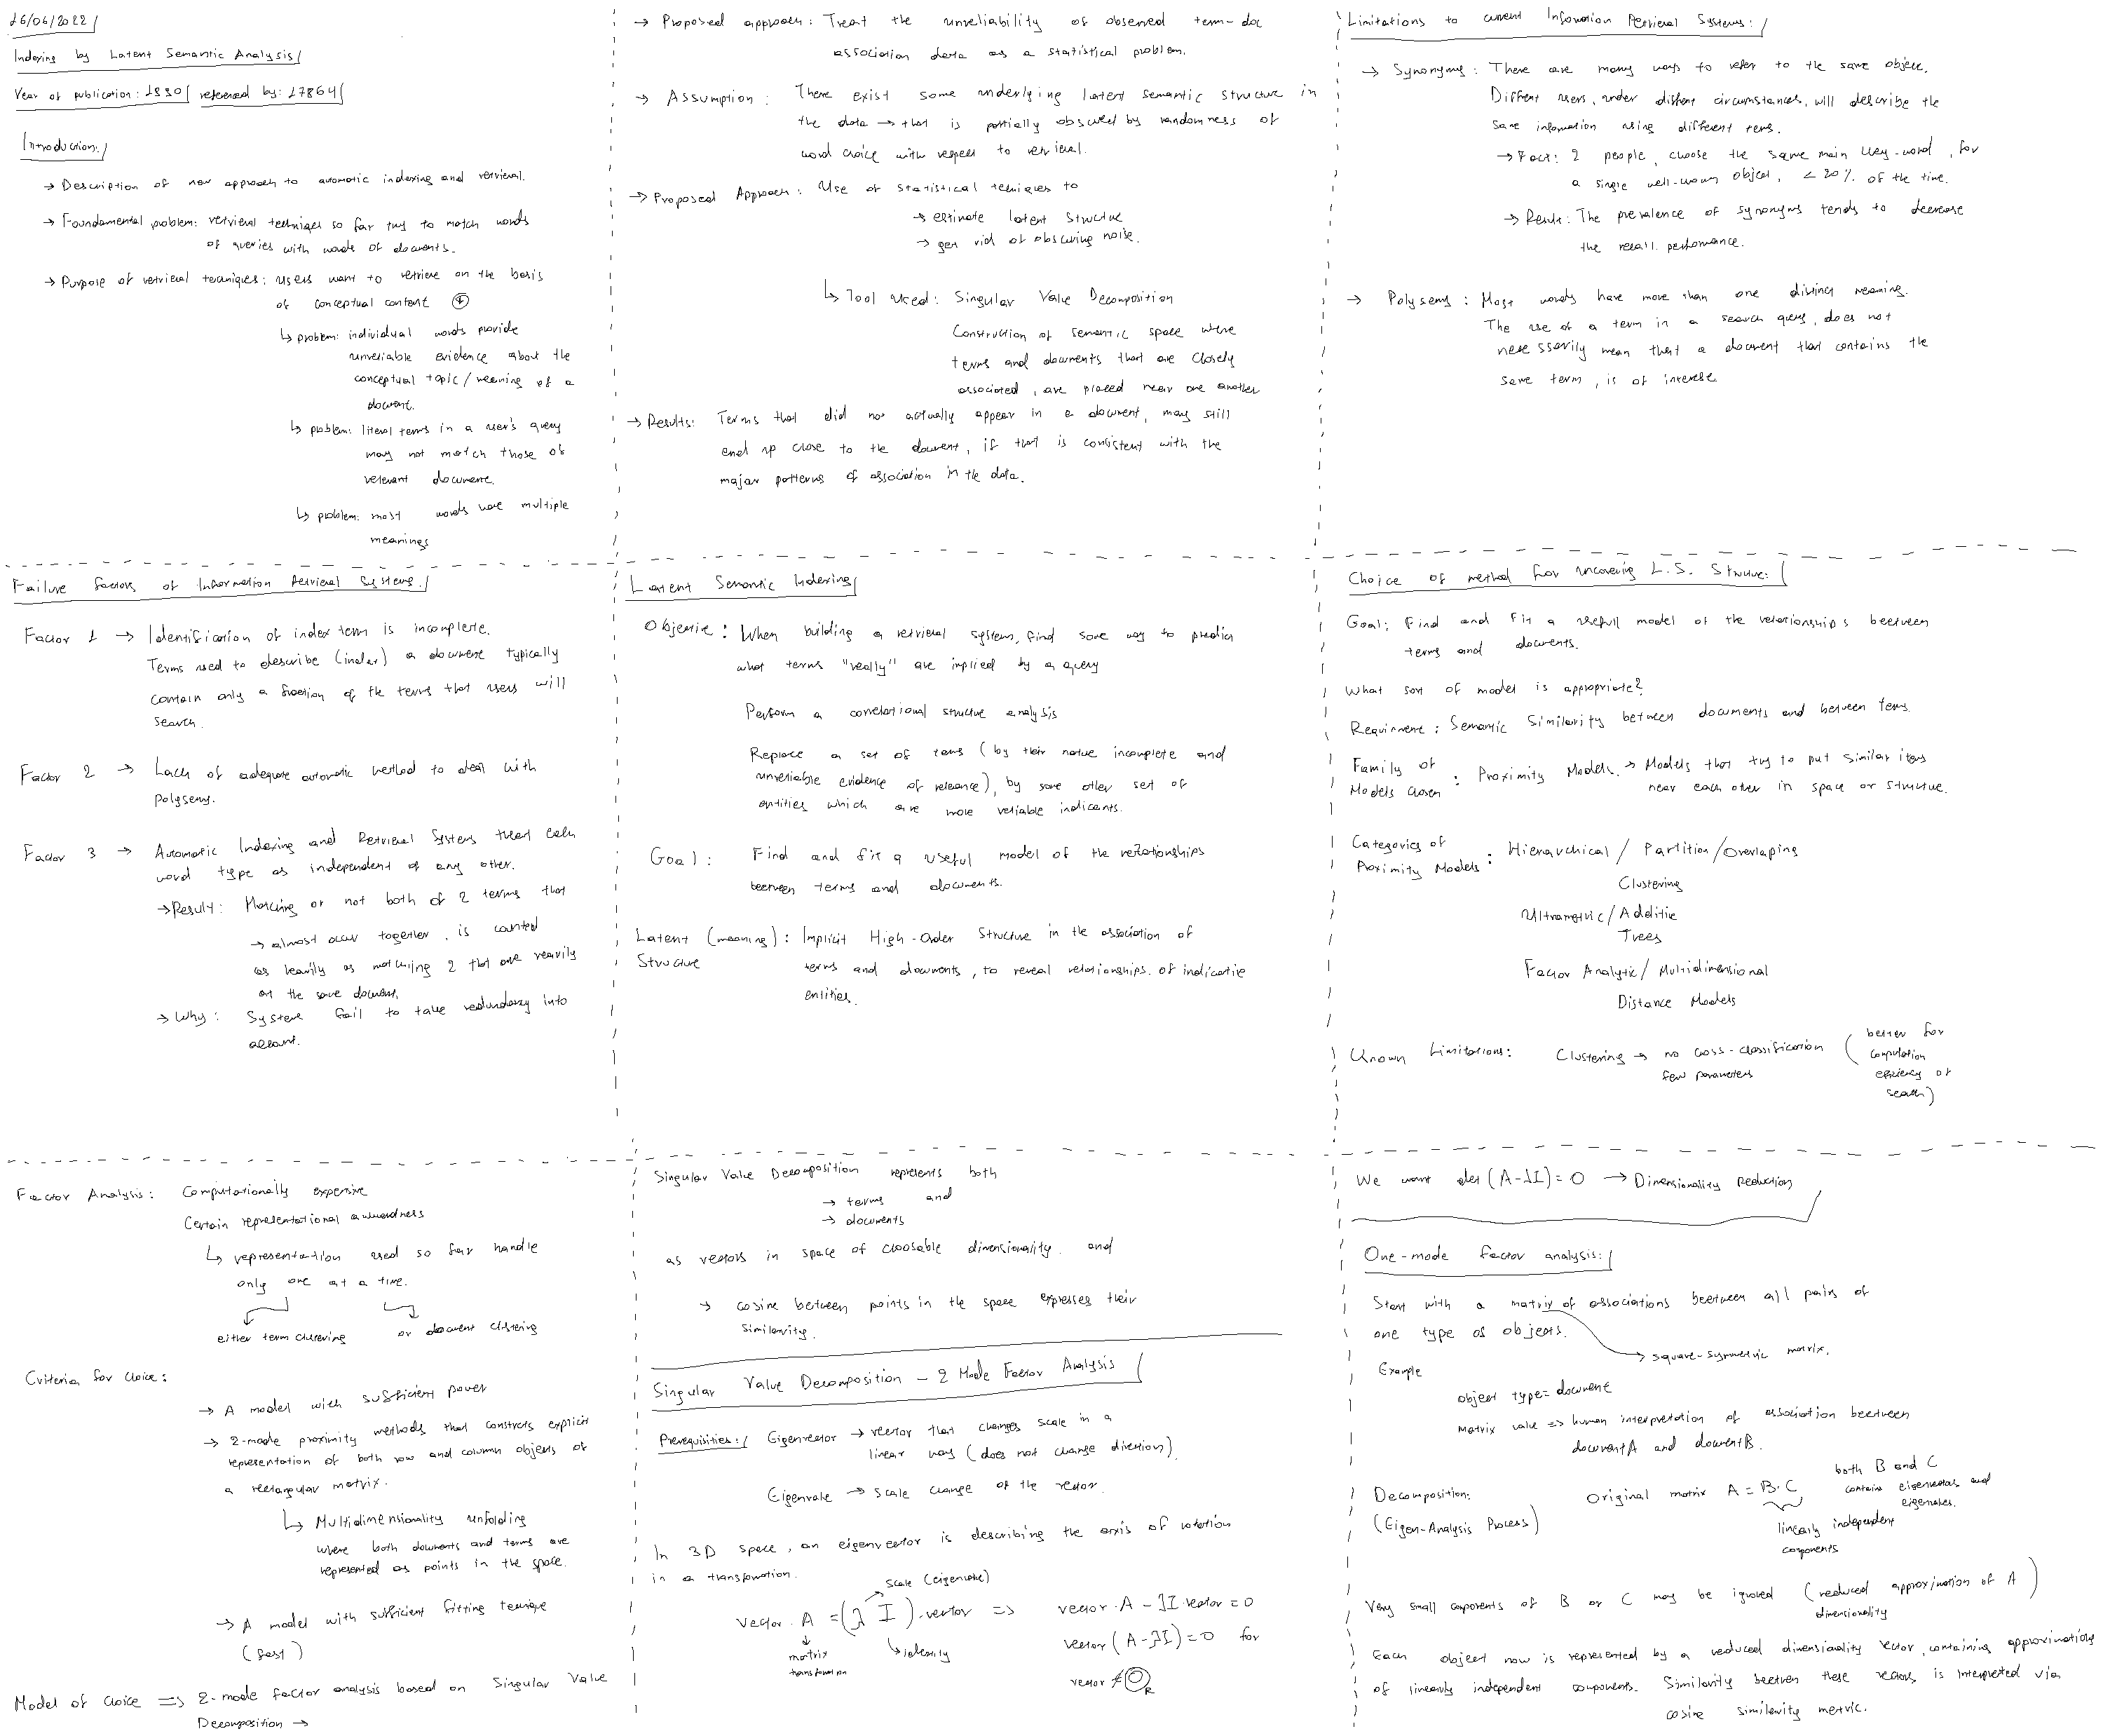 26/06/2022
Indexing by Latent Semantic Analysis
Year of publication: 1990 referenced by: 17864
Introduction:
→ Description of new approach to automatic indexing and retrieval.
→ Foundamental problem: retrieval techniqes so far try to match words
of queries with words of documents.
→ Purpose of retrieval tecniques: users want to retrieve on the basis
of conceptual content
↳ problem: individual words provide
unreliable evidence about the
conceptual topic/meaning of a
document.
↳ problem: literal terms in a user's query
may not match those of
relevant documents.
↳ problem: most words have multiple
meanings
→ Proposed approach: Treat the unreliability of observed term-doc
association data as a statistical problem.
→ Assumption: There exist some underlying latent semantic structure in
the data → that is partially obscured by randomness of
word choice with respect to retrieval.
→ Proposed Approach: Use of statistical techniques to
→ estimate latent structure
→ get rid of obscuring noise.
↳ Tool used: Singular Value Decomposition
Construction of semantic space where
terms and documents that are closely
associated, are placed near one another
→ Results: Terms that did not actually appear in a document, may still
end up close to the document, if that is consistent with the
major patterns of association in the data.
Limitations to current Information Retrieval Systems:
→ Synonyms: There are many ways to refer to the same object.
Different users, under different circumstances, will describe the
same information using different terms.
→ Fact: 2 people, choose the same main key-word, for
a single well-known object, < 20% of the time.
→ Result: The prevalence of synonyms tends to decrease
the recall performance.
→ Polysemy: Most words have more than one distinct meaning.
The use of a term in a search query, does not
necessarily mean that a document that contains the
same term, is of interest.
Failure factors of Information Retrieval Systems.
Factor 1 → Identification of index term is incomplete.
Terms used to describe (index) a document typically
contain only a fraction of the terms that users will
search.
Factor 2 → Lack of adequate automatic method to deal with
polysemy.
Factor 3 → Automatic Indexing and Retrieval Systems treat each
word type as independent of any other.
→ Result: Matching or not both of 2 terms that
→ almost occur together, is counted
as heavily as matching 2 that are
at the same document.
→ Why: Systems fail to take redundancy into
account.
Latent Semantic Indexing
Objective: When building a retrieval system, find some way to predict
what terms "really" are implied by a query
Perform a correlational structure analysis
Replace a set of terms (by their nature incomplete and
unreliable evidence of relevance), by some other set of
entities which are more reliable indicants.
Goal: Find and fit a useful model of the relationships
between terms and documents.
Latent (meaning): Implicit High-Order Structure in the association of
Structure terms and documents, to reveal relationships of indicative
entities.
Choice of method for uncovering L.S. Structure:
Goal: Find and fit a usefull model of the relationships beetween
terms and documents.
What sort of model is appropriate?
Requirement: Semantic Similarity between documents and between terms.
Family of : Proximity Models. → Models that try to put similar items
Models chosen near each other in space or structure.
Categories of : Hierarchical / Partition/Overlaping
Proximity Models Clustering
Ultrametric/Additive
Trees
Factor Analytic/Multidimensional
Distance Models
Known Limitations: Clustering → no cross-classification (better for
few parameters computation
efficiency of
search)
Factor Analysis: Computationally expensive
Certain representational awkwardness
↳ representation used so far handle
only one at a time.
either term clustering or document clustering
Criteria for choice:
→ A model with sufficient power
→ 2-mode proximity methods that constructs explicit
representation of both row and column objects of
a rectangular matrix.
↳ Multidimensionality unfolding
where both documents and terms are
represented as points in the space.
→ A model with sufficient fitting tecnique
(fast)
Model of choice => 2-mode factor analysis based on Singular Value
Decomposition →
Singular Value Decomposition represents both
→ terms and
→ documents
as vectors in space of choosable dimensionality and
→ cosine between points in the space expresses their
similarity.
Singular Value Decomposition - 2 Mode Factor Analysis
Prerequisities: Eigenvector → vector that changes scale in a
linear way (does not change direction).
Eigenvalue → scale change of the vector.
In 3D space, an eigenvector is describing the axis of rotation
in a transformation.
scale (eigenvalue)
vector · A = (λ I) · vector => vector · A - λI · vector = 0
matrix transformation
identity
vector (A-λI) = 0 for
vector ≠ 0R
We want det (A-λI) = 0 → Dimensionality Reduction
One-mode factor analysis:
Start with a matrix of associations beetween all pairs of
one type of objects.
→ square-symmetric matrix.
Example
object type = document
matrix value => human interpretation of association beetween
document A and document B.
Decomposition: Original matrix A = B · C
(Eigen-Analysis Process)
both B and C
contains eigenvectors and
eigenvalues.
linearly independent
components
Very small components of B or C may be ignored (reduced approximation of A)
dimensionality
Each object now is represented by a reduced dimensionality vector, containing approximations
of linearly independent components. Similarity beetven these vectors is interpreted via
cosine similarity metric.